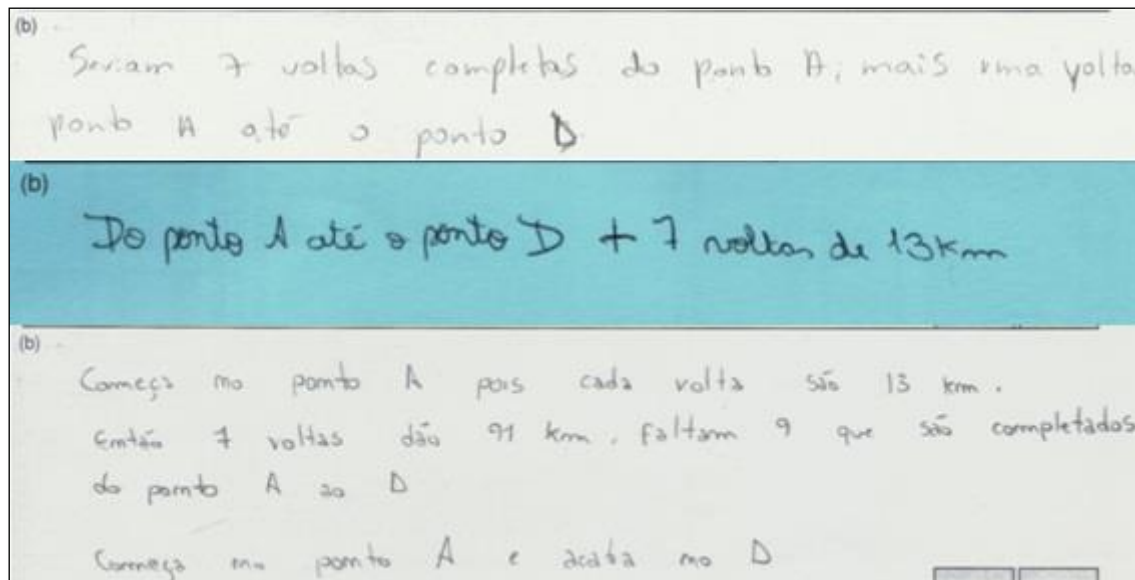 (b)
Seriam 7 voltas completas do ponto A; mais uma volta
ponto A até o ponto D
(b)
Do ponto A até o ponto D + 7 voltas de 13km
(b)
Começa no ponto A pois cada volta são 13 km.
Então 7 voltas dão 91 km. faltam 9 que são completados
do ponto A ao D
Começa no ponto A e acaba no D